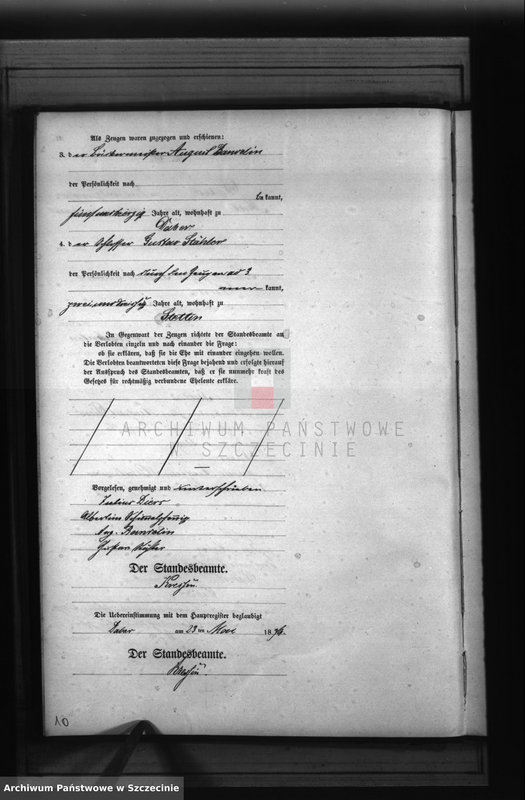 Als Zeugen waren zugezogen und erschienen:
3. der August
der Persönlichkeit nach
bekannt,
fünfundvierzig Jahre alt, wohnhaft zu
Daber
4. der Schlosser Gustav
der Persönlichkeit nach durch den Zeugen ad 3
kannt,
zweiunddreißig Jahre alt, wohnhaft zu
Stettin
In Gegenwart der Zeugen richtete der Standesbeamte an
die Verlobten einzeln und nach einander die Frage:
ob sie erklären, daß sie die Ehe mit einander eingehen wollen.
Die Verlobten beantworteten diese Frage bejahend und erfolgte hierauf
der Ausspruch des Standesbeamten, daß er sie nunmehr kraft des
Gesetzes für rechtmäßig verbundene Eheleute erkläre.
ARCHIWUM PAŃSTWOWE
W SZCZECINIE
Vorgelesen, genehmigt und unterschrieben
Julius
Albertine
Aug.
Gustav
Der Standesbeamte.
Die Uebereinstimmung mit dem Hauptregister beglaubigt
Daber am 23ten Mai 1896.
Der Standesbeamte.
10
Archiwum Państwowe w Szczecinie